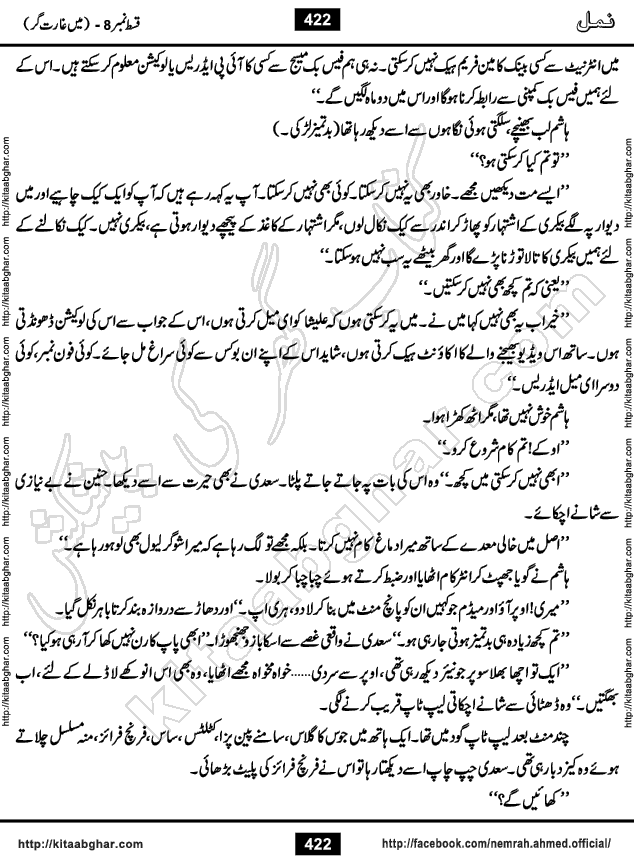 نمل
422
قسط نمبر 8 - (میں غارت گر)
میں انٹرنیٹ سے کسی بینک کا مین فریم ہیک نہیں کر سکتی۔ نہ ہی ہم فیس بک میسج سے کسی کا آئی پی ایڈریس یا لوکیشن معلوم کر سکتے ہیں۔ اس کے
لئے ہمیں فیس بک کمپنی سے رابطہ کرنا ہوگا اور اس میں دو ماہ لگیں گے۔‘‘
ہاشم لب بھینچے، سلگتی ہوئی نگاہوں سے اسے دیکھ رہا تھا (بدتمیز لڑکی۔)
’’تو تم کیا کر سکتی ہو؟‘‘
’’ایسے مت دیکھیں مجھے۔ خاور بھی یہ نہیں کر سکتا۔ کوئی بھی نہیں کر سکتا۔ آپ یہ کہہ رہے ہیں کہ آپ کو ایک کیک چاہیے اور میں
دیوار پہ لگے بیکری کے اشتہار کو پھاڑ کر اندر سے کیک نکال لوں، مگر اشتہار کے کاغذ کے پیچھے دیوار ہوتی ہے، بیکری نہیں۔ کیک نکالنے کے
لئے ہمیں بیکری کا تالا توڑنا پڑے گا اور گھر بیٹھے یہ سب نہیں ہو سکتا۔‘‘
’’یعنی کہ تم کچھ بھی نہیں کر سکتیں۔‘‘
’’خیر اب یہ بھی نہیں کہا میں نے۔ میں یہ کر سکتی ہوں کہ علیشا کو ای میل کرتی ہوں، اس کے جواب سے اس کی لوکیشن ڈھونڈتی
ہوں۔ ساتھ اس ویڈیو بھیجنے والے کا اکاؤنٹ ہیک کرتی ہوں، شاید اس کے اپنے ان بوکس سے کوئی سراغ مل جائے۔ کوئی فون نمبر، کوئی
دوسرا ای میل ایڈریس۔‘‘
ہاشم خوش نہیں تھا، مگر اٹھ کھڑا ہوا۔
’’اوکے! تم کام شروع کرو۔‘‘
’’ابھی نہیں کر سکتی میں کچھ۔‘‘ وہ اس کی بات پہ جاتے جاتے پلٹا۔ سعدی نے بھی حیرت سے اسے دیکھا۔ حنین نے بے نیازی
سے شانے اچکائے۔
’’اصل میں خالی معدے کے ساتھ میرا دماغ کام نہیں کرتا۔ بلکہ مجھے تو لگ رہا ہے کہ میرا شوگر لیول بھی لو ہو رہا ہے۔‘‘
ہاشم نے گویا جھپٹ کر انٹرکام اٹھایا اور ضبط کرتے ہوئے چبا چبا کر بولا۔
’’میری! اوپر آؤ اور میڈم جو کہیں ان کو پانچ منٹ میں بنا کر لا دو، ہری اپ۔‘‘ اور دھاڑ سے دروازہ بند کرتا باہر نکل گیا۔
’’تم کچھ زیادہ ہی بدتمیز ہوتی جا رہی ہو۔‘‘ سعدی نے واقعی غصے سے اسکا بازو جھنجھوڑا۔ ’’ابھی پاپ کارن نہیں کھا کر آ رہی ہو کیا؟‘‘
’’ایک تو اچھا بھلا سو پر جونیئر دیکھ رہی تھی، اوپر سے سردی...... خواہ مخواہ مجھے اٹھایا، وہ بھی اس انوکھے لاڈلے کے لئے، اب
بھگتیں۔‘‘ وہ ڈھٹائی سے شانے اچکاتی لیپ ٹاپ قریب کرنے لگی۔
چند منٹ بعد لیپ ٹاپ گود میں تھا۔ ایک ہاتھ میں جوس کا گلاس، سامنے پین پزا، کٹلٹس، ساس، فرنچ فرائز، منہ مسلسل چلاتے
ہوئے وہ کیز دبا رہی تھی۔ سعدی چپ چاپ اسے دیکھتا رہا تو اس نے فرنچ فرائز کی پلیٹ بڑھائی۔
’’کھائیں گے؟‘‘
http://kitaabghar.com
422
http://facebook.com/nemrah.ahmed.official/
http://kitaabghar.com http://kitaabghar.com http://kitaabghar.com http://kitaabghar.com http://kitaabghar.com http://kitaabghar.com
http://kitaabghar.com http://kitaabghar.com http://kitaabghar.com http://kitaabghar.com http://kitaabghar.com http://kitaabghar.com
کتاب گھر کی پیشکش
kitaabghar.com